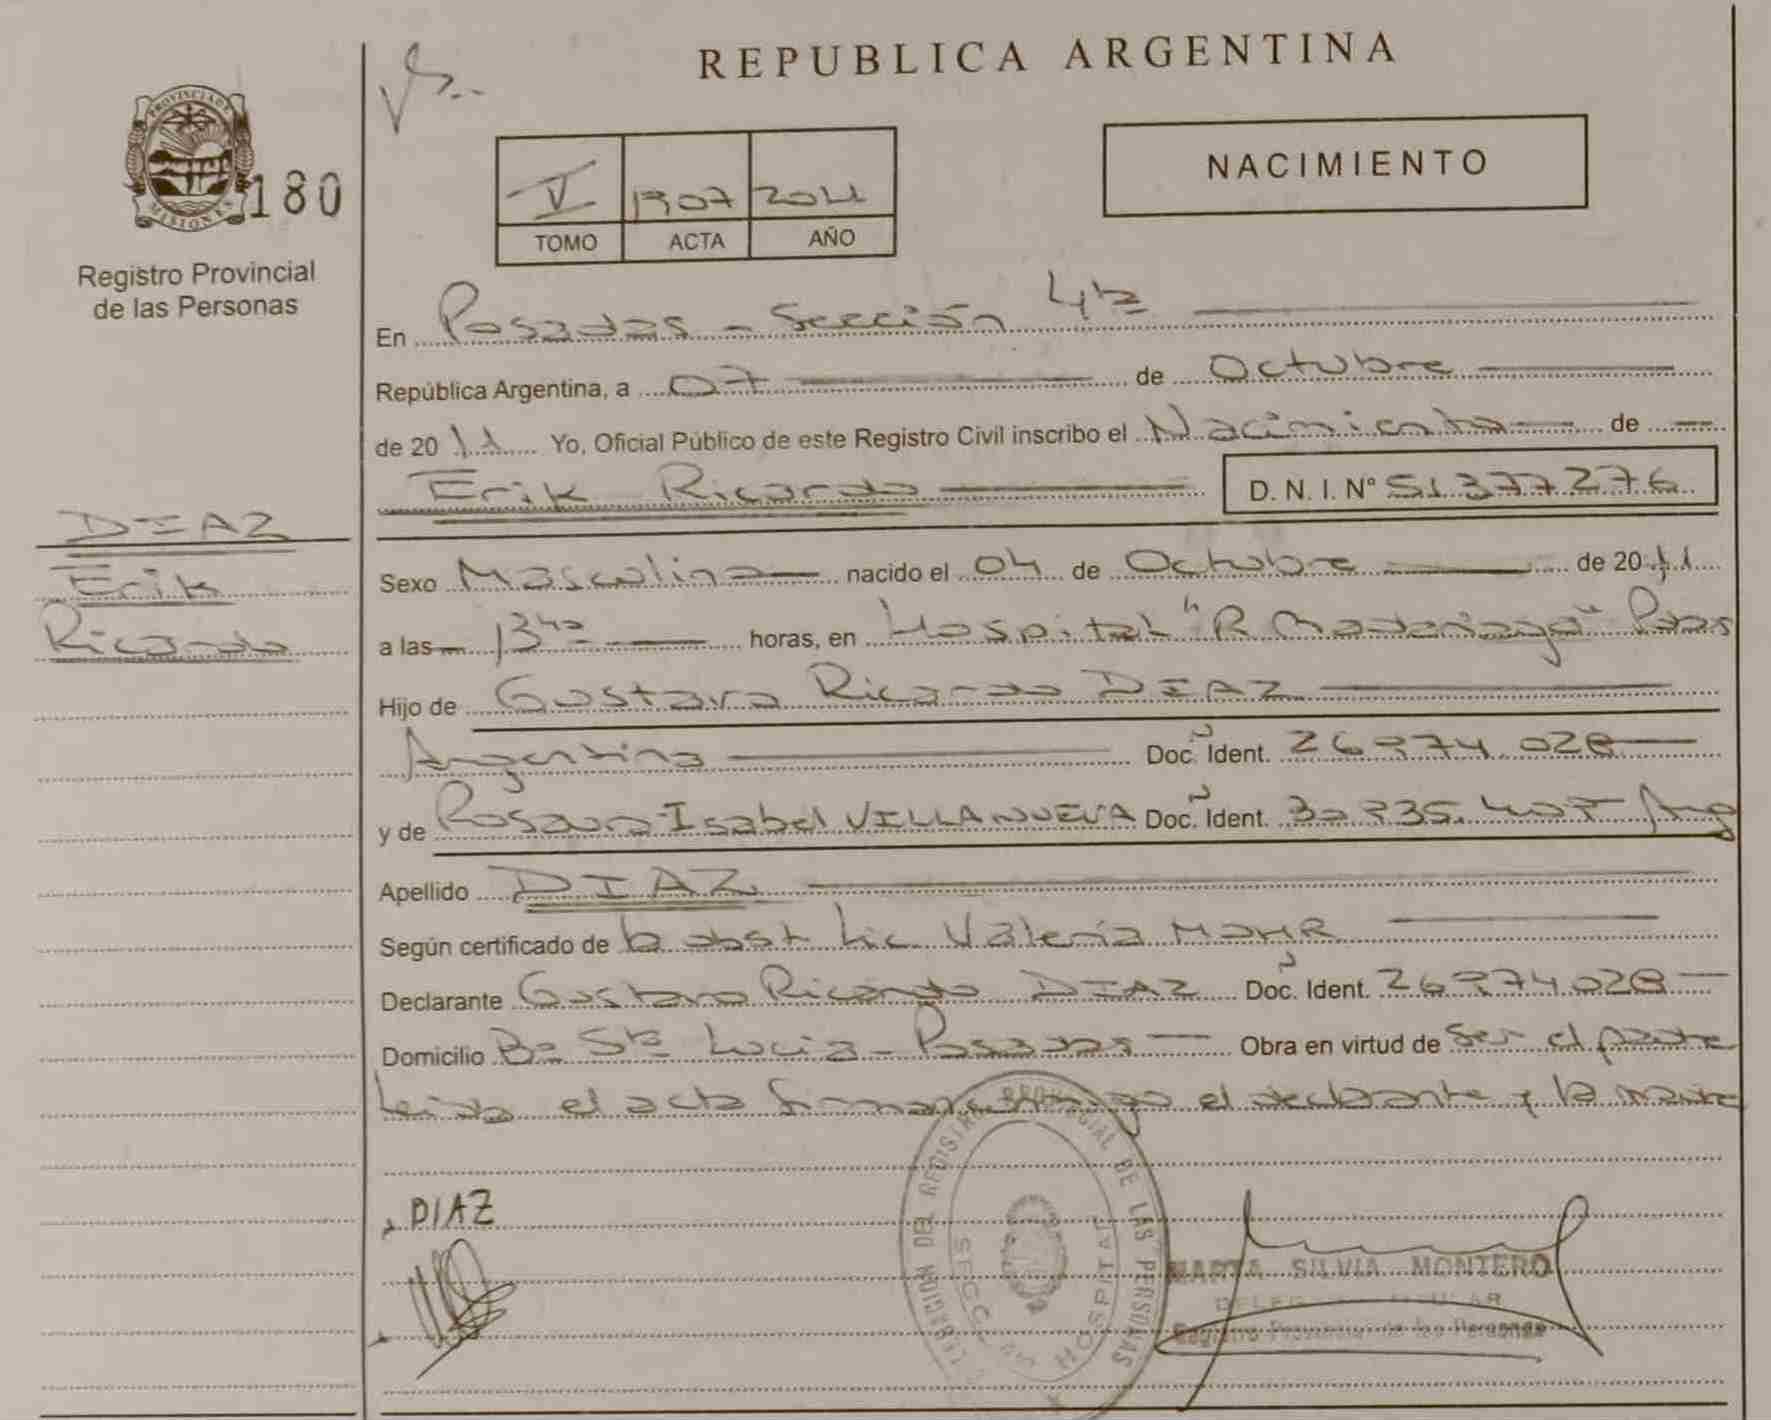 REPUBLICA ARGENTINA
PROVINCIA DE MISIONES
180
Registro Provincial
de las Personas
V 1907 2011
TOMO ACTA AÑO
NACIMIENTO
En Posadas - Sección 4ta
República Argentina, a 07 de Octubre
de 2011 Yo, Oficial Público de este Registro Civil inscribo el Nacimiento de
Erik Ricardo D. N. I. N° 51377276
DIAZ
Erik
Ricardo
Sexo Masculino nacido el 04 de Octubre de 2011
a las 13 40 horas, en Hospital "R Madariaga" Pdas
Hijo de Gustavo Ricardo DIAZ
Argentino Doc. Ident. 26.974.028
y de Isabel VILLANUEVA Doc. Ident. 30.935.407 Arg
Apellido DIAZ
Según certificado de la obst Lic Valeria
Declarante Gustavo Ricardo DIAZ Doc. Ident. 26974028
Domicilio Bo Sta Lucia - Posadas Obra en virtud de ser el padre
Leida el acta firman conmigo el declarante y la madre
DIAZ
DEL REGISTRO PROVINCIAL DE LAS PERSONAS
HOSPITAL
MARTA SILVIA MONTERO
Registro Provincial de las Personas